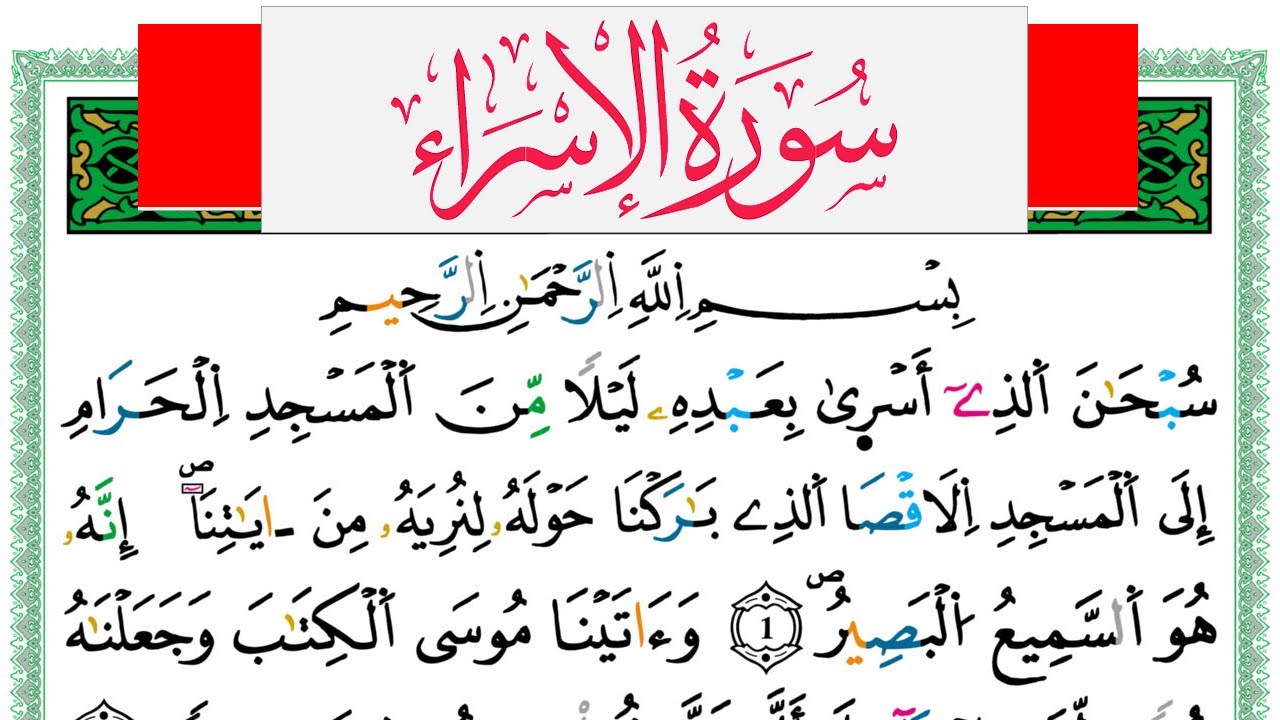 سُورَةُ الْإِسْرَاء
بِسْمِ اِللَّهِ اِلرَّحْمَٰنِ اِلرَّحِيمِ
سُبْحَٰنَ اَلذِےٓ أَسْر۪ىٰ بِعَبْدِهِۦ لَيْلًا مِّنَ اَلْمَسْجِدِ اِلْحَرَامِ
إِلَى اَلْمَسْجِدِ اِلَاقْصَا اَلذِے بَٰرَكْنَا حَوْلَهُۥ لِنُرِيَهُۥ مِنَ ـ ايَٰتِنَآۖ إِنَّهُۥ
هُوَ اَلسَّمِيعُ اُلْبَصِيرُۖ 1 وَءَاتَيْنَا مُوسَى اَلْكِتَٰبَ وَجَعَلْنَٰهُ